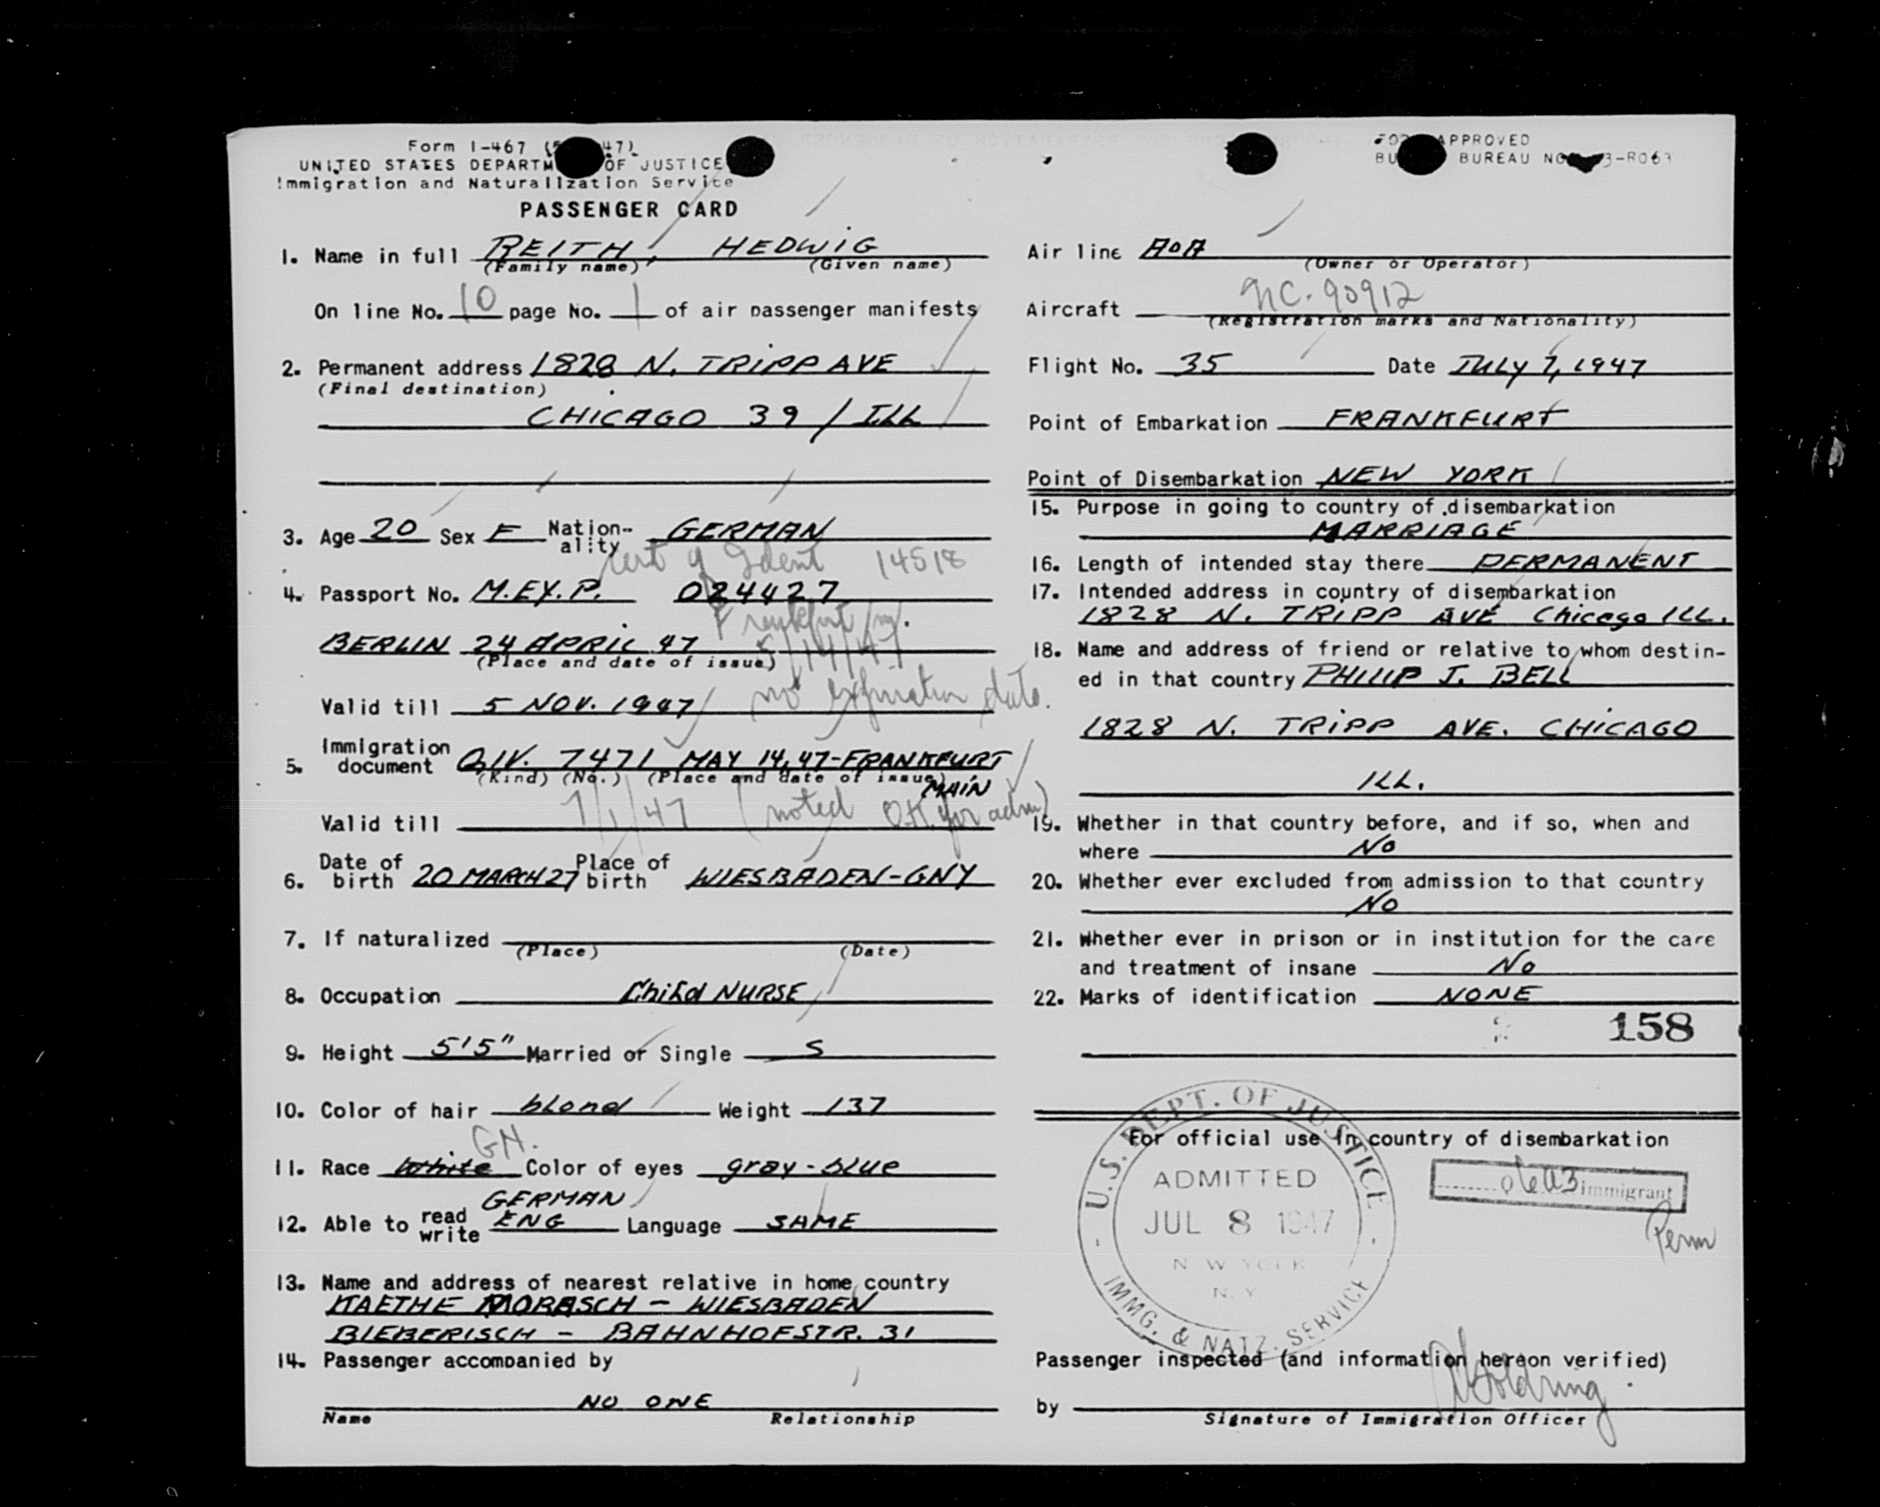 Form I-467 (
47)
UNITED STATES DEPARTM OF JUSTICE
Immigration and Naturalization Service
PASSENGER CARD
1. Name in full REITH, HEDWIG
(Family name) (Given name)
On line No. 10 page No. 1 of air passenger manifests
2. Permanent address 1828 N. TRIPP AVE
(Final destination)
CHICAGO 39 / ILL
3. Age 20 Sex F Nation-
ality GERMAN
Cert of Ident 14518
4. Passport No. M.EX.P. 024427
Frankfurt /m.
BERLIN 24 APRIL 47 5/14/47
(Place and date of issue)
no expiration date.
Valid till 5 NOV. 1947
5. Immigration
document Q.I.V. 7471 MAY 14, 47-FRANKFURT
(Kind) (No.) (Place and date of issue)
MAIN
7/1/47 (noted OK for adm)
Valid till
6. Date of
birth 20 MARCH 27 Place of
birth WIESBADEN-GNY
7. If naturalized
(Place) (Date)
8. Occupation Child NURSE
9. Height 5'5" Married or Single S
10. Color of hair blond Weight 137
GN.
11. Race White Color of eyes gray-blue
GERMAN
12. Able to read
write ENG Language SAME
13. Name and address of nearest relative in home country
KAETHE MORASCH - WIESBADEN
BIEBERISCH - BAHNHOFSTR. 31
14. Passenger accompanied by
NO ONE
Name Relationship
APPROVED
BU BUREAU NO. 3-R063
Air line AOA
(Owner or Operator)
Aircraft NC. 90912
(Registration marks and Nationality)
Flight No. 35 Date JULY 7, 1947
Point of Embarkation FRANKFURT
Point of Disembarkation NEW YORK
15. Purpose in going to country of disembarkation
MARRIAGE
16. Length of intended stay there PERMANENT
17. Intended address in country of disembarkation
1828 N. TRIPP AVE Chicago ILL.
18. Name and address of friend or relative to whom destin-
ed in that country PHILIP J. BELL
1828 N. TRIPP AVE. CHICAGO
ILL.
19. Whether in that country before, and if so, when and
where NO
20. Whether ever excluded from admission to that country
NO
21. Whether ever in prison or in institution for the care
and treatment of insane NO
22. Marks of identification NONE
158
For official use in country of disembarkation
U.S. DEPT. OF JUSTICE
ADMITTED
JUL 8 1947
NEW YORK
N.Y.
IMMG. & NATZ. SERVICE
immigrant
Perm
Passenger inspected (and information hereon verified)
by Goldring
Signature of Immigration Officer